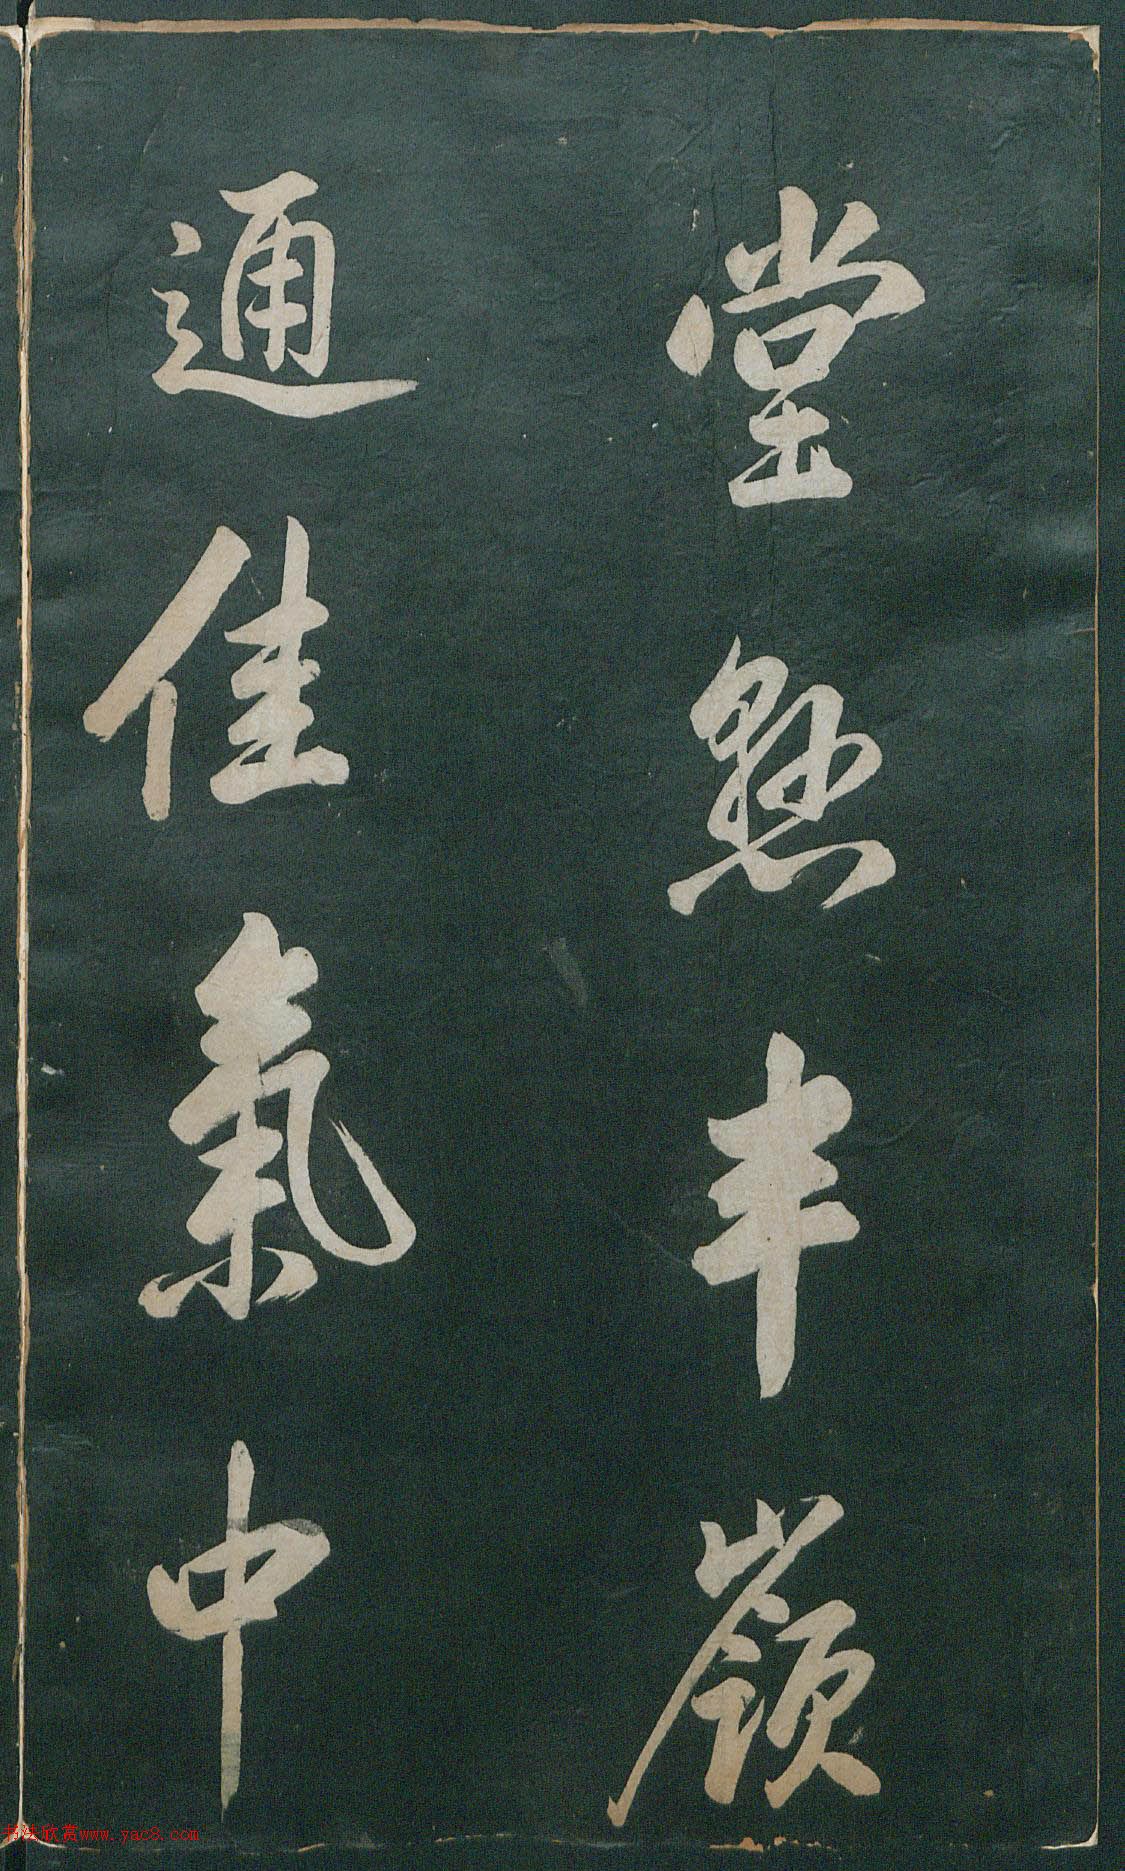 堂懸半嶺
通佳氣中
书法欣赏www.yac8.com